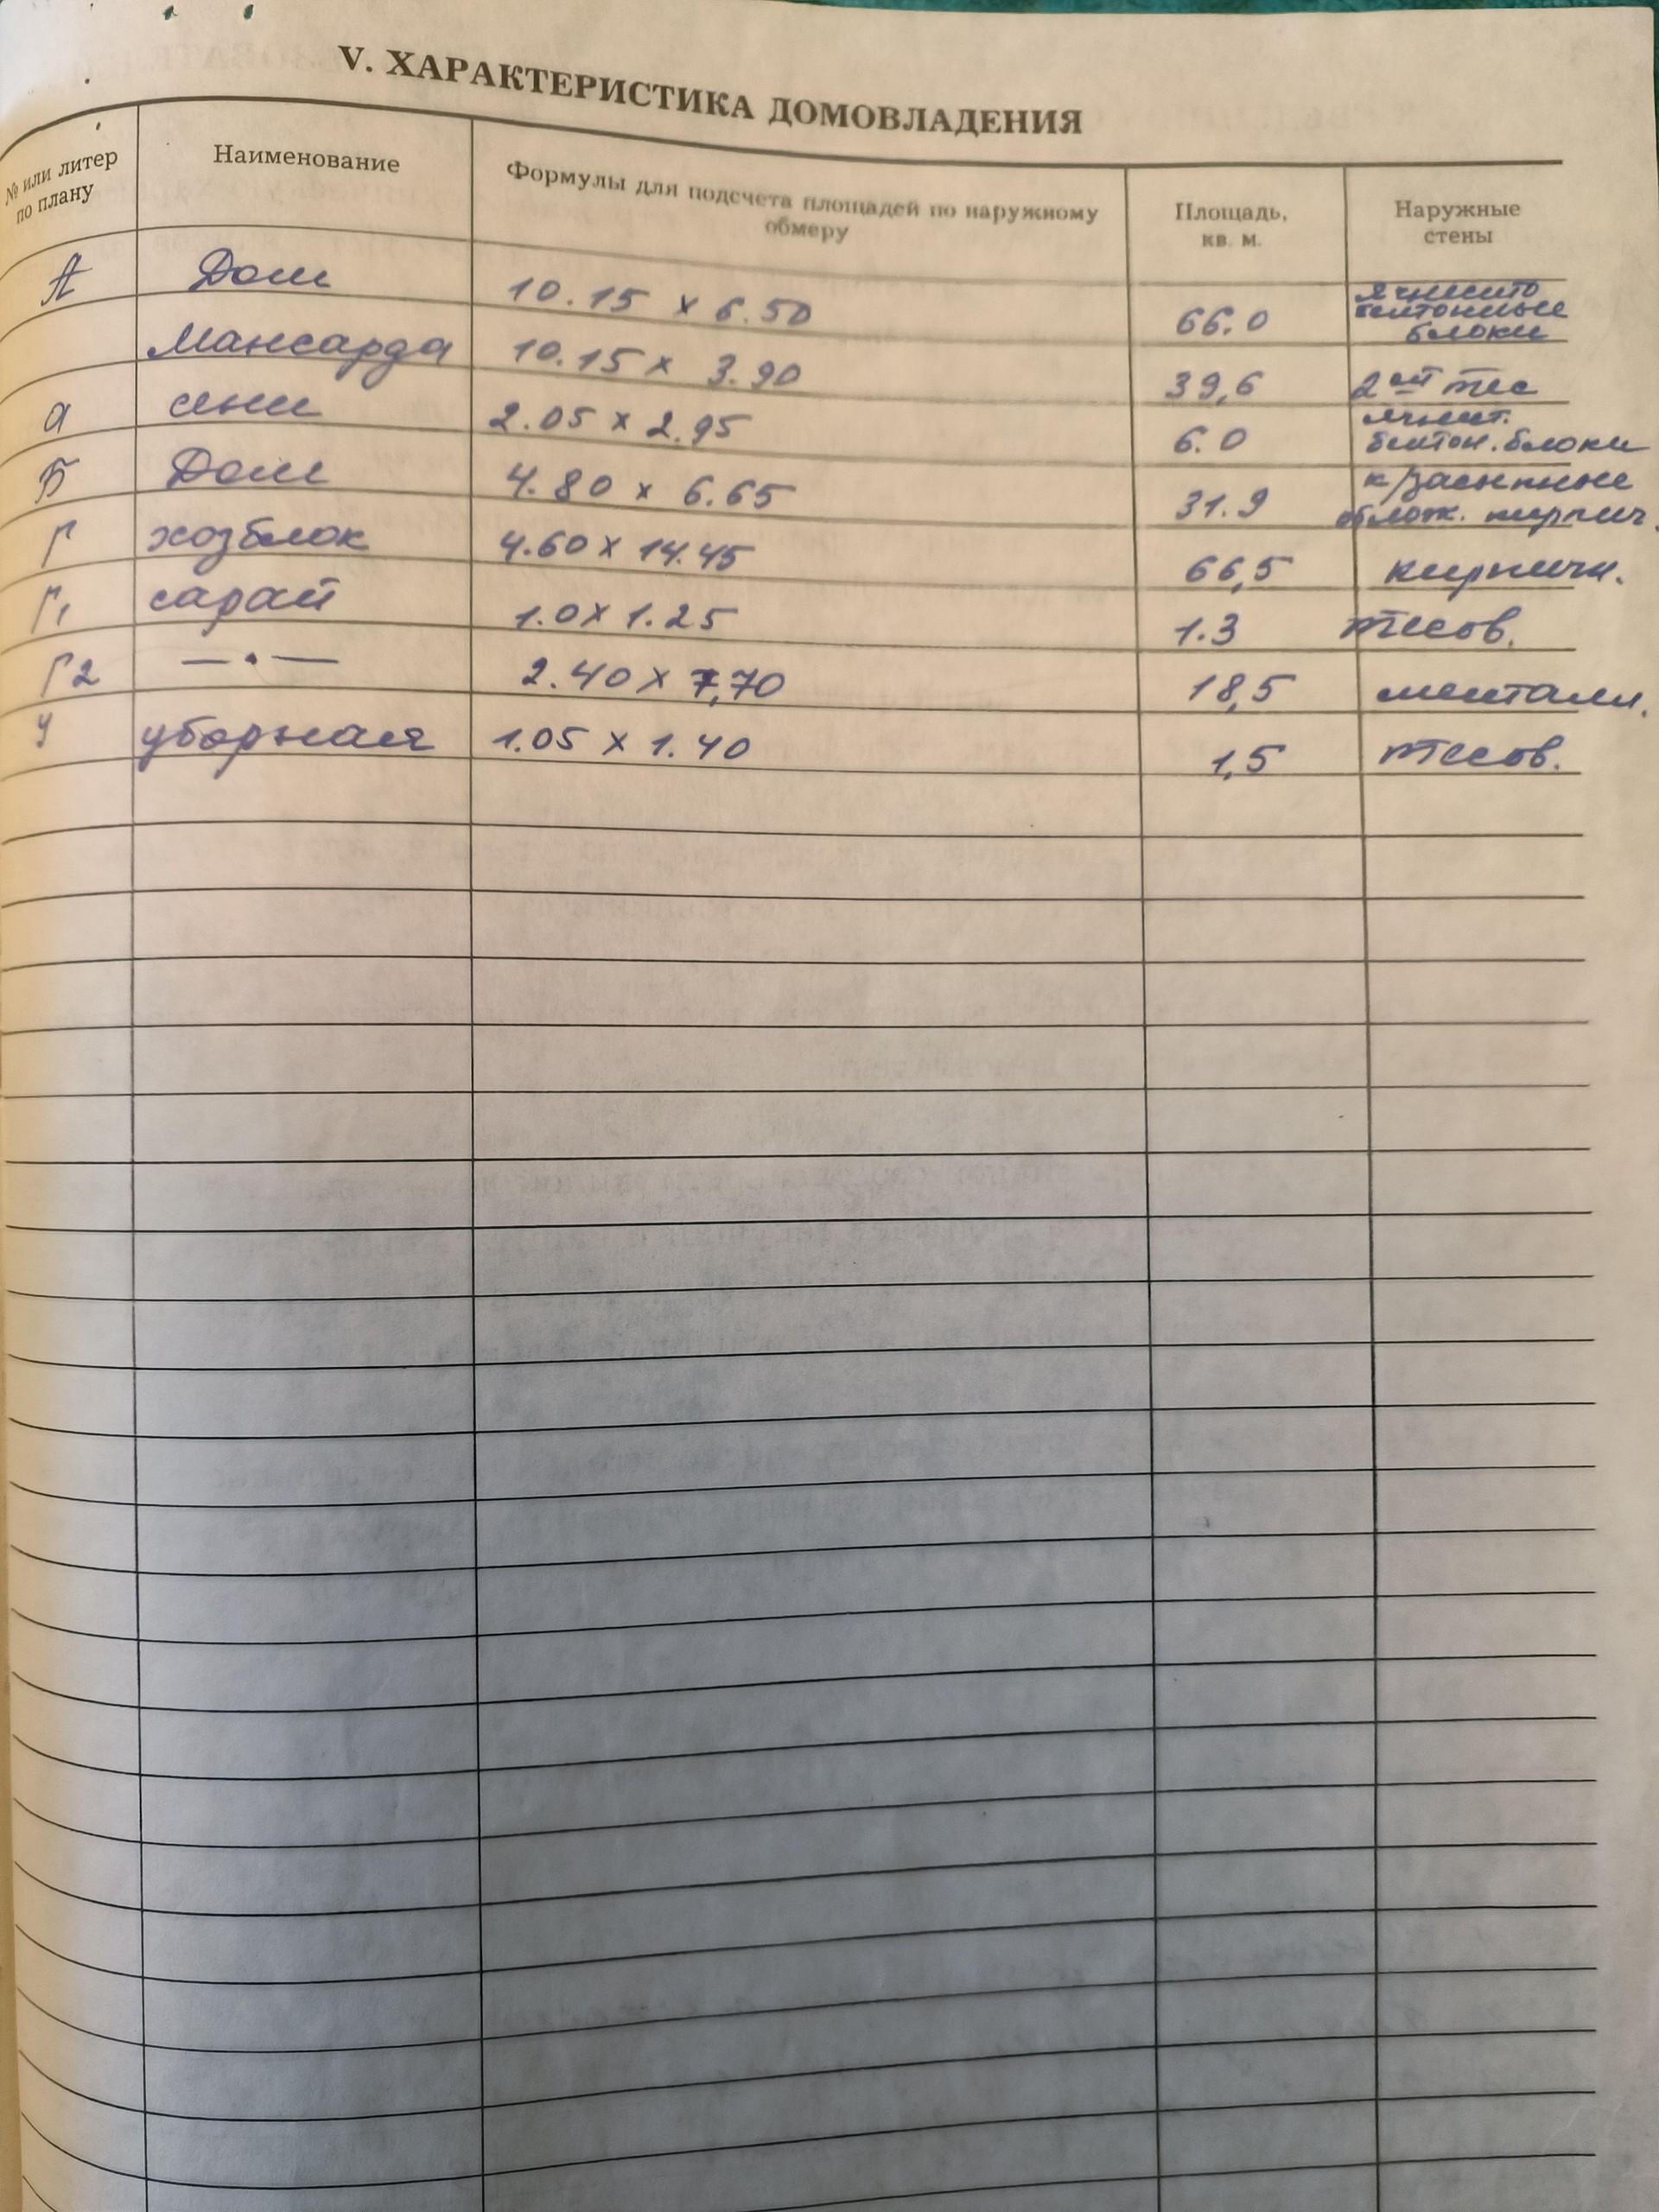 V. ХАРАКТЕРИСТИКА ДОМОВЛАДЕНИЯ
№ или литер по плану Наименование Формулы для подсчета площадей по наружному обмеру Площадь, кв. м. Наружные стены
А Дом 10.15 x 6.50 66.0 ячеисто бетонные блоки
Мансарда 10.15 x 3.90 39,6 2ой тес
а сени 2.05 x 2.95 6.0 ячеист. бетон. блоки
Б Дом 4.80 x 6.65 31.9 к/засыпные облож. кирпич.
Г хозблок 4.60 x 14.45 66,5 кирпичн.
Г1 сарай 1.0 x 1.25 1.3 тесов.
Г2 — • — 2.40 x 7,70 18,5 металл.
У уборная 1.05 x 1.40 1,5 тесов.